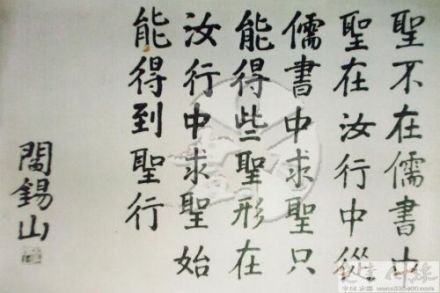 聖不在儒書中
聖在汝行中從
儒書中求聖只
能得些聖形在
汝行中求聖始
能得到聖行
閻錫山